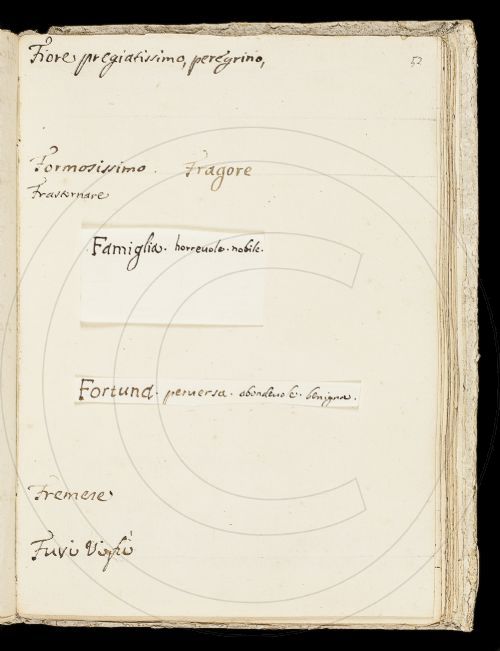 52
Fiore pregiatissimo, peregrino,
Formosissimo. Fragore
Frastornare
Famiglia. horrevole. nobile.
Fortuna. perversa. abondevole. benigna.
Fremere